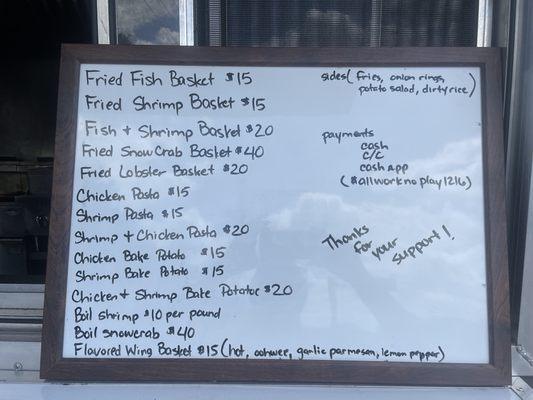 Fried Fish Basket $15
Fried Shrimp Basket $15
Fish & Shrimp Basket $20
Fried SnowCrab Basket $40
Fried Lobster Basket $20
Chicken Pasta $15
Shrimp Pasta $15
Shrimp & Chicken Pasta $20
Chicken Bake Potato $15
Shrimp Bake Potato $15
Chicken & Shrimp Bake Potatoe $20
Boil shrimp $10 per pound
Boil snowcrab $40
Flavored Wing Basket $15 (hot, garlic parmesan, lemon pepper)
sides (fries, onion rings,
potato salad, dirty rice)
payments
cash
c/c
cash app
($allworknoplay1216)
Thanks
for
your
support!